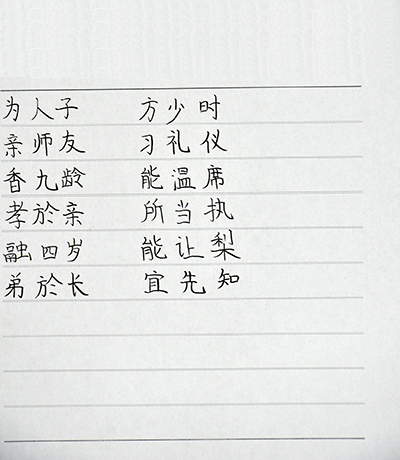 为人子 方少时
亲师友 习礼仪
香九龄 能温席
孝於亲 所当执
融四岁 能让梨
弟於长 宜先知